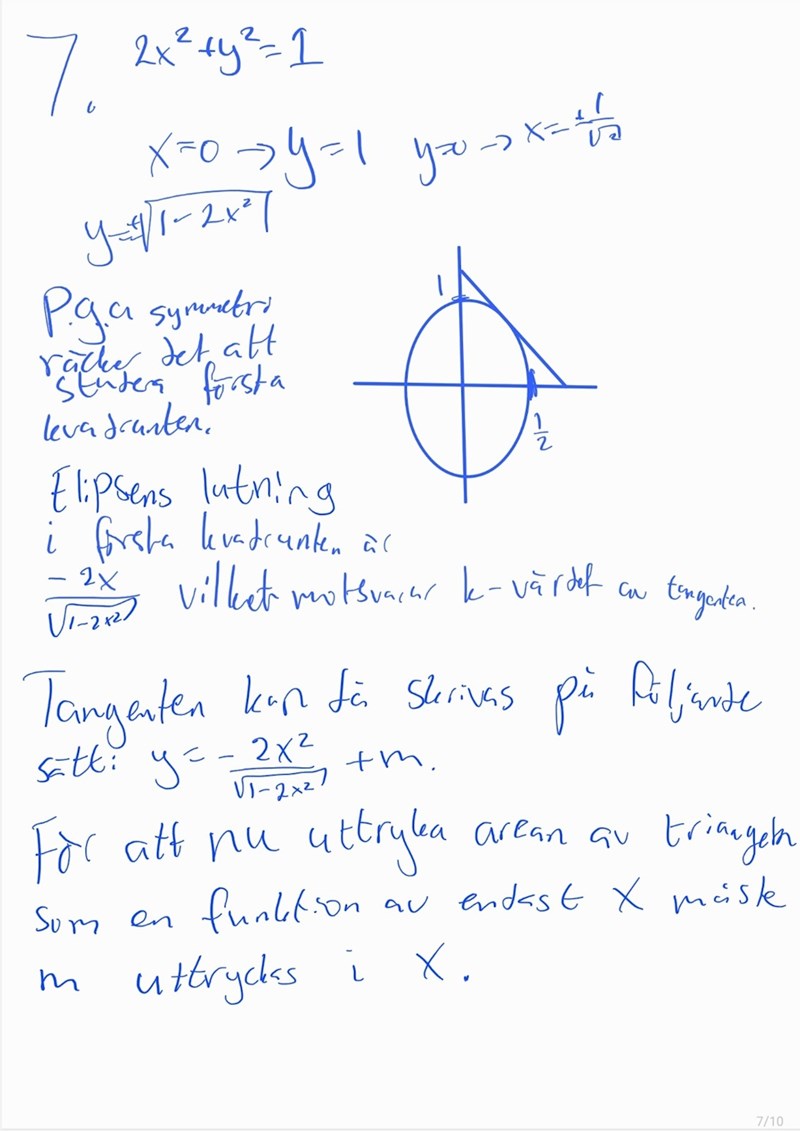 7. 2x²+y²=1
x=0 → y=1 y=0 → x=±1/√2
y=±√(1-2x²)
P.g.a symmetri
räcker det att
studera första
kvadranten.
1
1/2
Elipsens lutning
i första kvadranten är
-2x/√(1-2x²) vilket motsvarar k-värdet av tangenten.
Tangenten kan då skrivas på följande
sätt: y=-2x²/√(1-2x²) +m.
För att nu uttryka arean av triangeln
som en funktion av endast x måste
m uttryckas i x.
7/10